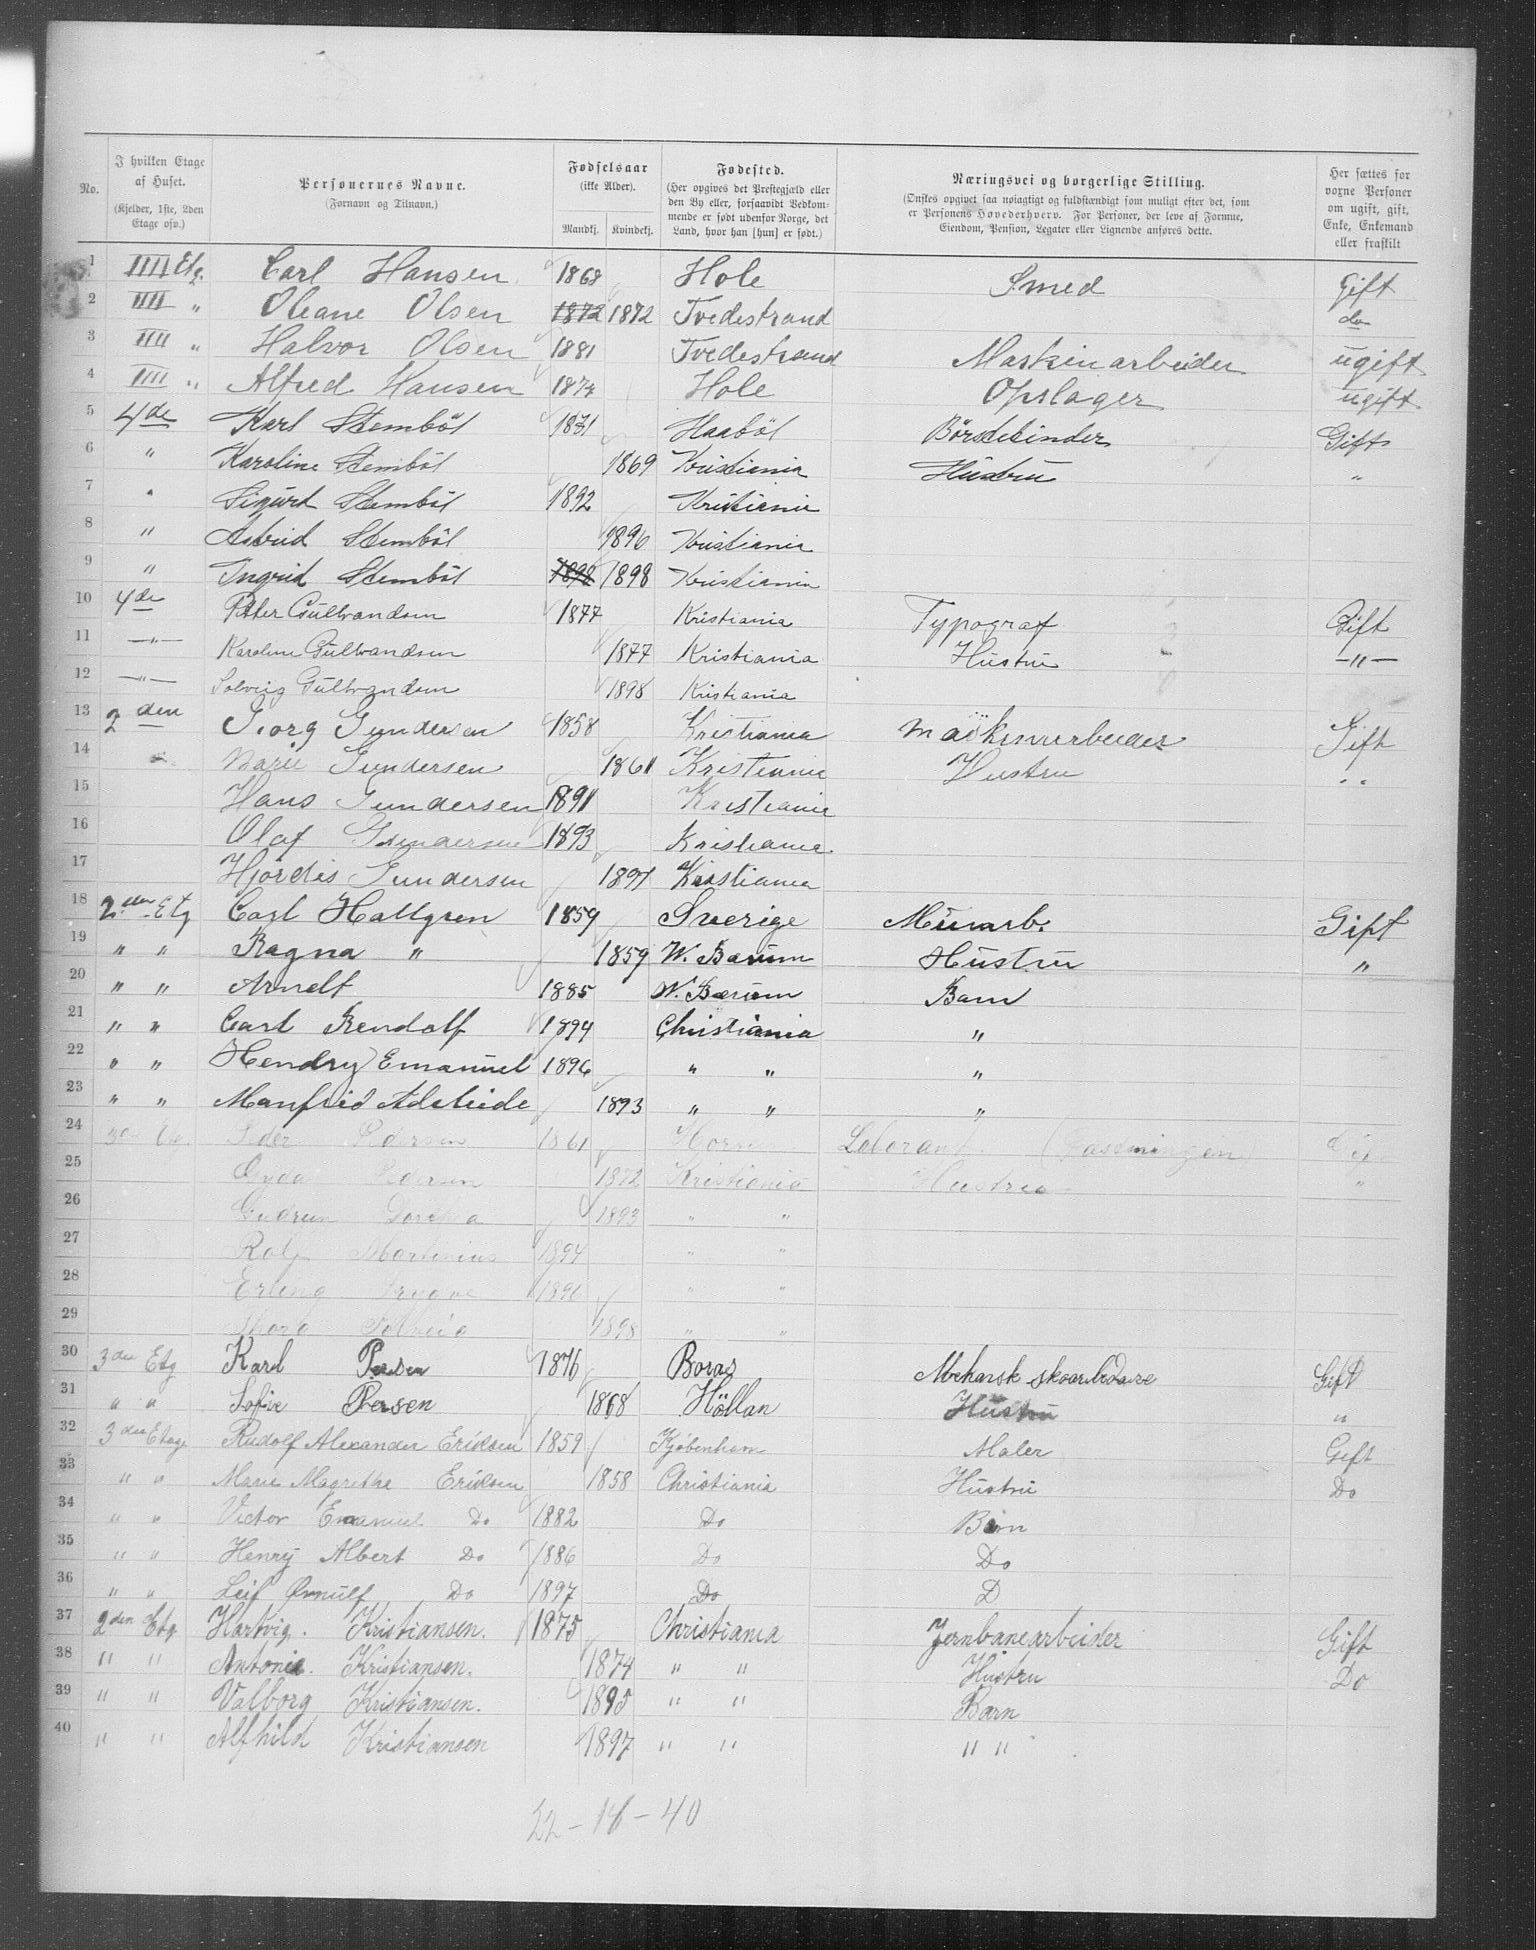 No.
I hvilken Etage af Huset. (Kjelder, 1ste, 2den Etage osv.)
Personernes Navne. (Fornavn og Tilnavn.)
Fødselsaar (ikke Alder). Mandkj. Kvindekj.
Fødested. (Her opgives det Prestegjæld eller den By eller, forsaavidt Vedkommende er født udenfor Norge, det Land, hvor han [hun] er født.)
Næringsvei og borgerlige Stilling. (Ønskes opgivet saa nøiagtigt og fuldstændigt som muligt efter det, som er Personens Hovederhverv. For Personer, der leve af Formue, Eiendom, Pension, Legater eller Lignende anføres dette.
Her sættes for voxne Personer om ugift, gift, Enke, Enkemand eller fraskilt
1 IIII Etg. Carl Hansen 1868 Hole Smed Gift
2 IIII " Oleane Olsen 1872 1872 Tvedestrand do
3 IIII " Halvor Olsen 1881 Tvedestrand Maskinarbeider ugift
4 IIII " Alfred Hansen 1874 Hole Opslager ugift
5 4de Karl Stemböl 1871 Haaböl Börstebinder Gift
6 " Karoline Stemböl 1869 Kristiania Hustru "
7 " Sigurd Stemböl 1892 Kristiania
8 " Astrid Stemböl 1896 Kristiania
9 " Ingrid Stemböl 1898 1898 Kristiania
10 4de Peter Gulbrandsen 1877 Kristiania Typograf Gift
11 —"— Karoline Gulbrandsen 1877 Kristiania Hustru —"—
12 —"— Solveig Gulbrandsen 1898 Kristiania
13 2den Georg Gundersen 1858 Kristiania Maskinarbeider Gift
14 " Marie Gundersen 1861 Kristiania Hustru "
15 Hans Gundersen 1891 Kristiania
16 Olaf Gundersen 1893 Kristiania
17 Hjördis Gundersen 1897 Kristiania
18 2den Etg Carl Hallgren 1859 Sverige Murarb. Gift
19 " " Ragna " 1859 W. Bærum Hustru "
20 " " Arnolt 1885 W. Bærum Barn
21 " " Carl Rendolf 1894 Christiania "
22 " " Hendry Emanuel 1896 " " "
23 " " Manfrid Adeleide 1893 " " "
24 3die Etg. Peder Pedersen 1861 Laborant
25 Gyda Pedersen 1872 Kristiania Hustru "
26 Gudrun 1893 " "
27 Rolf Martinius 1894 " "
28 Erling Trygve 1896 " "
29 Thora Solveig 1898 " "
30 3die Etg Karl Persen 1876 Boras Mekansk skoarbedare Gift
31 " " Sofie Persen 1868 Höllan Hustru "
32 3die Etage Rudolf Alexander Eriksen 1859 Kjøbenhavn Maler Gift
33 " " Marie Magrethe Eriksen 1858 Christiania Hustru Do
34 " " Victor Emanuel Do 1882 Do Barn
35 " " Henrij Albert Do 1886 Do Do
36 " " Leif Ørnulf Do 1897 Do D
37 2den Etg Hartvig. Kristiansen. 1875 Christiania Jernbanearbeider Gift
38 " " Antonie. Kristiansen. 1874 " " Hustru Do
39 " " Valborg Kristiansen. 1895 " " Barn
40 " " Alfhild Kristiansen 1897 " " " "
22 - 18 - 40